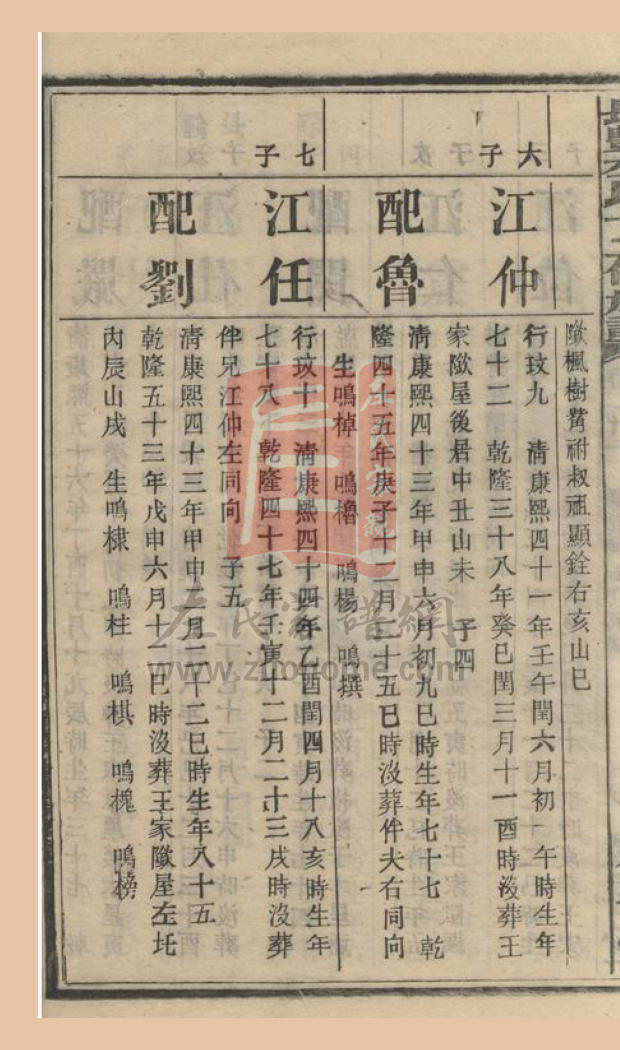 歟楓樹嘴祔叔祖顯銓右亥山巳
六子
江仲
行玟九 清康熙四十一年壬午閏六月初 午時生年
七十二 乾隆三十八年癸巳閏三月十一酉時沒葬王
家歟屋後居中丑山未 子四
配魯
清康熙四十三年甲申六月初九巳時生年七十七 乾
隆四十五年庚子十二月二十五巳時沒葬伴夫右同向
生鳴棹 鳴櫓 鳴楊 鳴撰
七子
江任
行玟十 清康熙四十四年乙酉閏四月十八亥時生年
七十八 乾隆四十七年壬寅十二月二十三戌時沒葬
伴兄江仲左同向 子五
配劉
清康熙四十三年甲申二月二十二巳時生年八十五
乾隆五十三年戊申六月十一巳時沒葬王家歟屋左圫
丙辰山戌 生鳴棣 鳴柱 鳴棋 鳴槐 鳴榜
左氏家譜網
www.zuohome.com